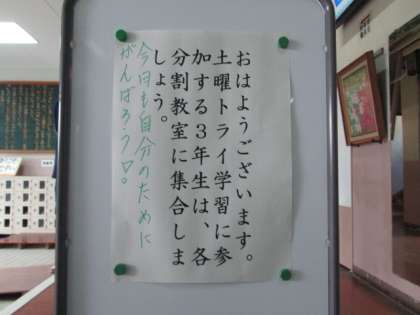 おはようございます。
土曜トライ学習に参
加する３年生は、各
分割教室に集合しま
しょう。
今日も自分のために
がんばろう♡。